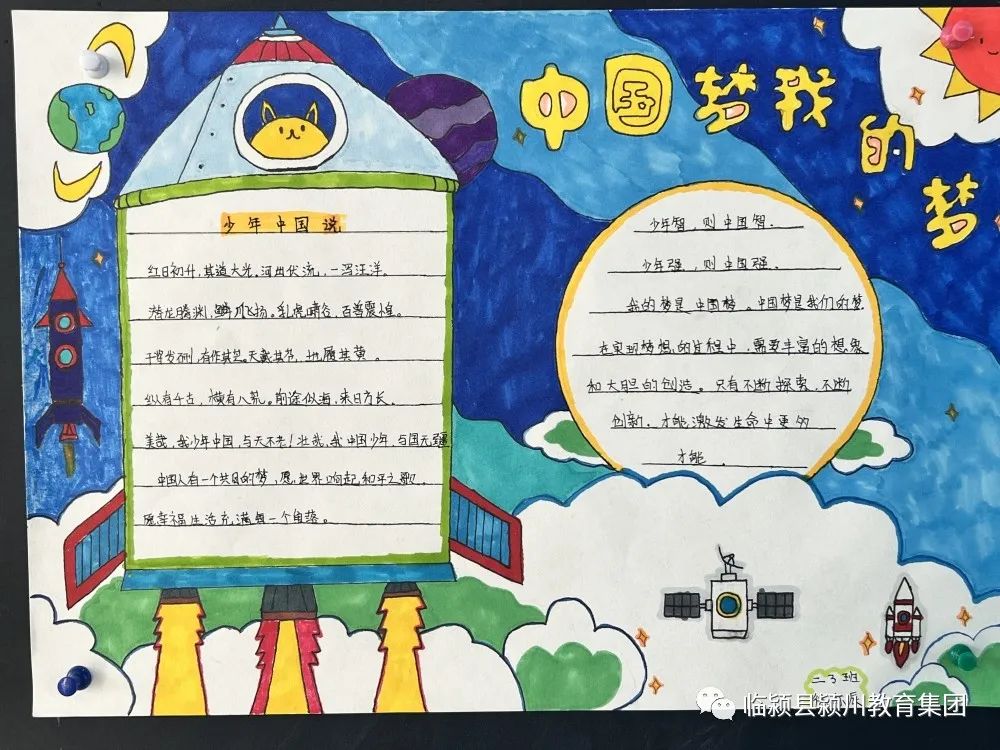 中国梦我的梦
少年中国说
红日初升，其道大光。河出伏流，一泻汪洋。
潜龙腾渊，鳞爪飞扬。乳虎啸谷，百兽震惶。
干将发硎，有作其芒。天戴其苍，地履其黄。
纵有千古，横有八荒。前途似海，来日方长。
美哉，我少年中国，与天不老！壮哉，我中国少年，与国无疆
中国人有一个共同的梦，愿世界响起和平之歌，
愿幸福生活充满每一个角落。
少年智，则中国智。
少年强，则中国强。
我的梦是中国梦。中国梦是我们的梦
在实现梦想的旅程中，需要丰富的想象
和大胆的创造。只有不断探索，不断
创新，才能激发生命中更多
才能。
二3班
临颍县颍川教育集团